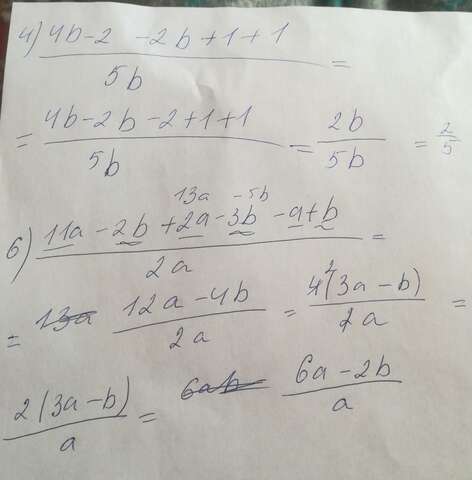 4) (4b-2 -2b+1+1)/5b =
= (4b-2b-2+1+1)/5b = 2b/5b = 2/5
13a -5b
6) (11a-2b+2a-3b-a+b)/2a =
= 13a (12a-4b)/2a = 4 2(3a-b)/2a =
2(3a-b)/a = 6ab (6a-2b)/a